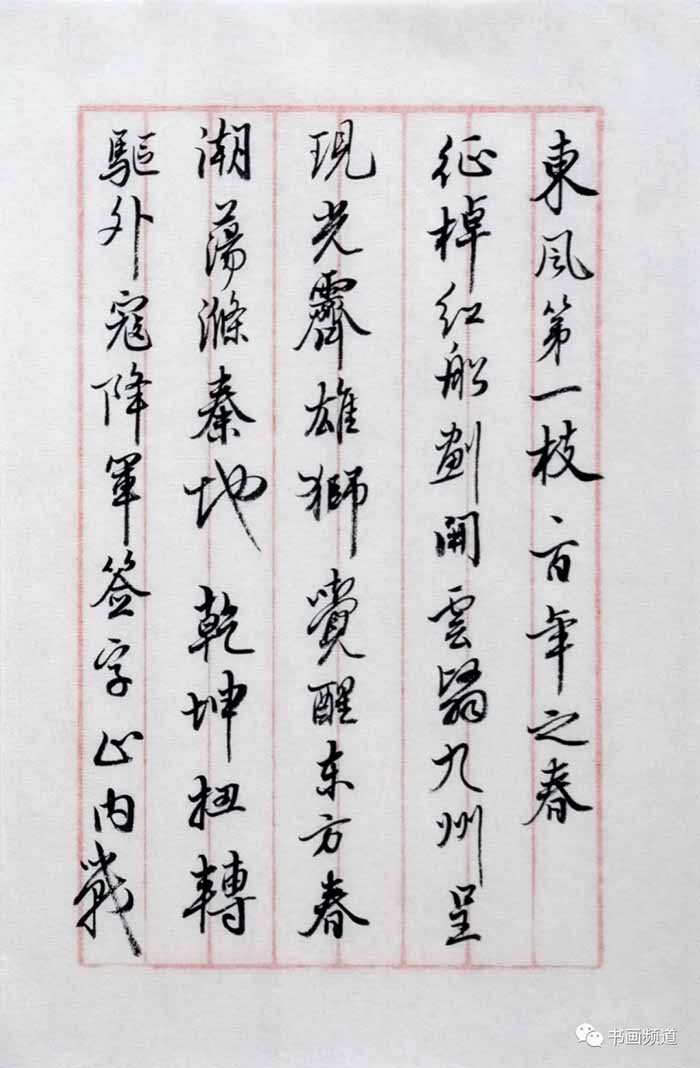 東風第一枝、百年之春
征棹红船劃開雲翳九州呈
現光霽雄獅覺醒东方春
潮蕩滌秦地乾坤扭轉
驅外寇降軍签字止内戰
书画频道